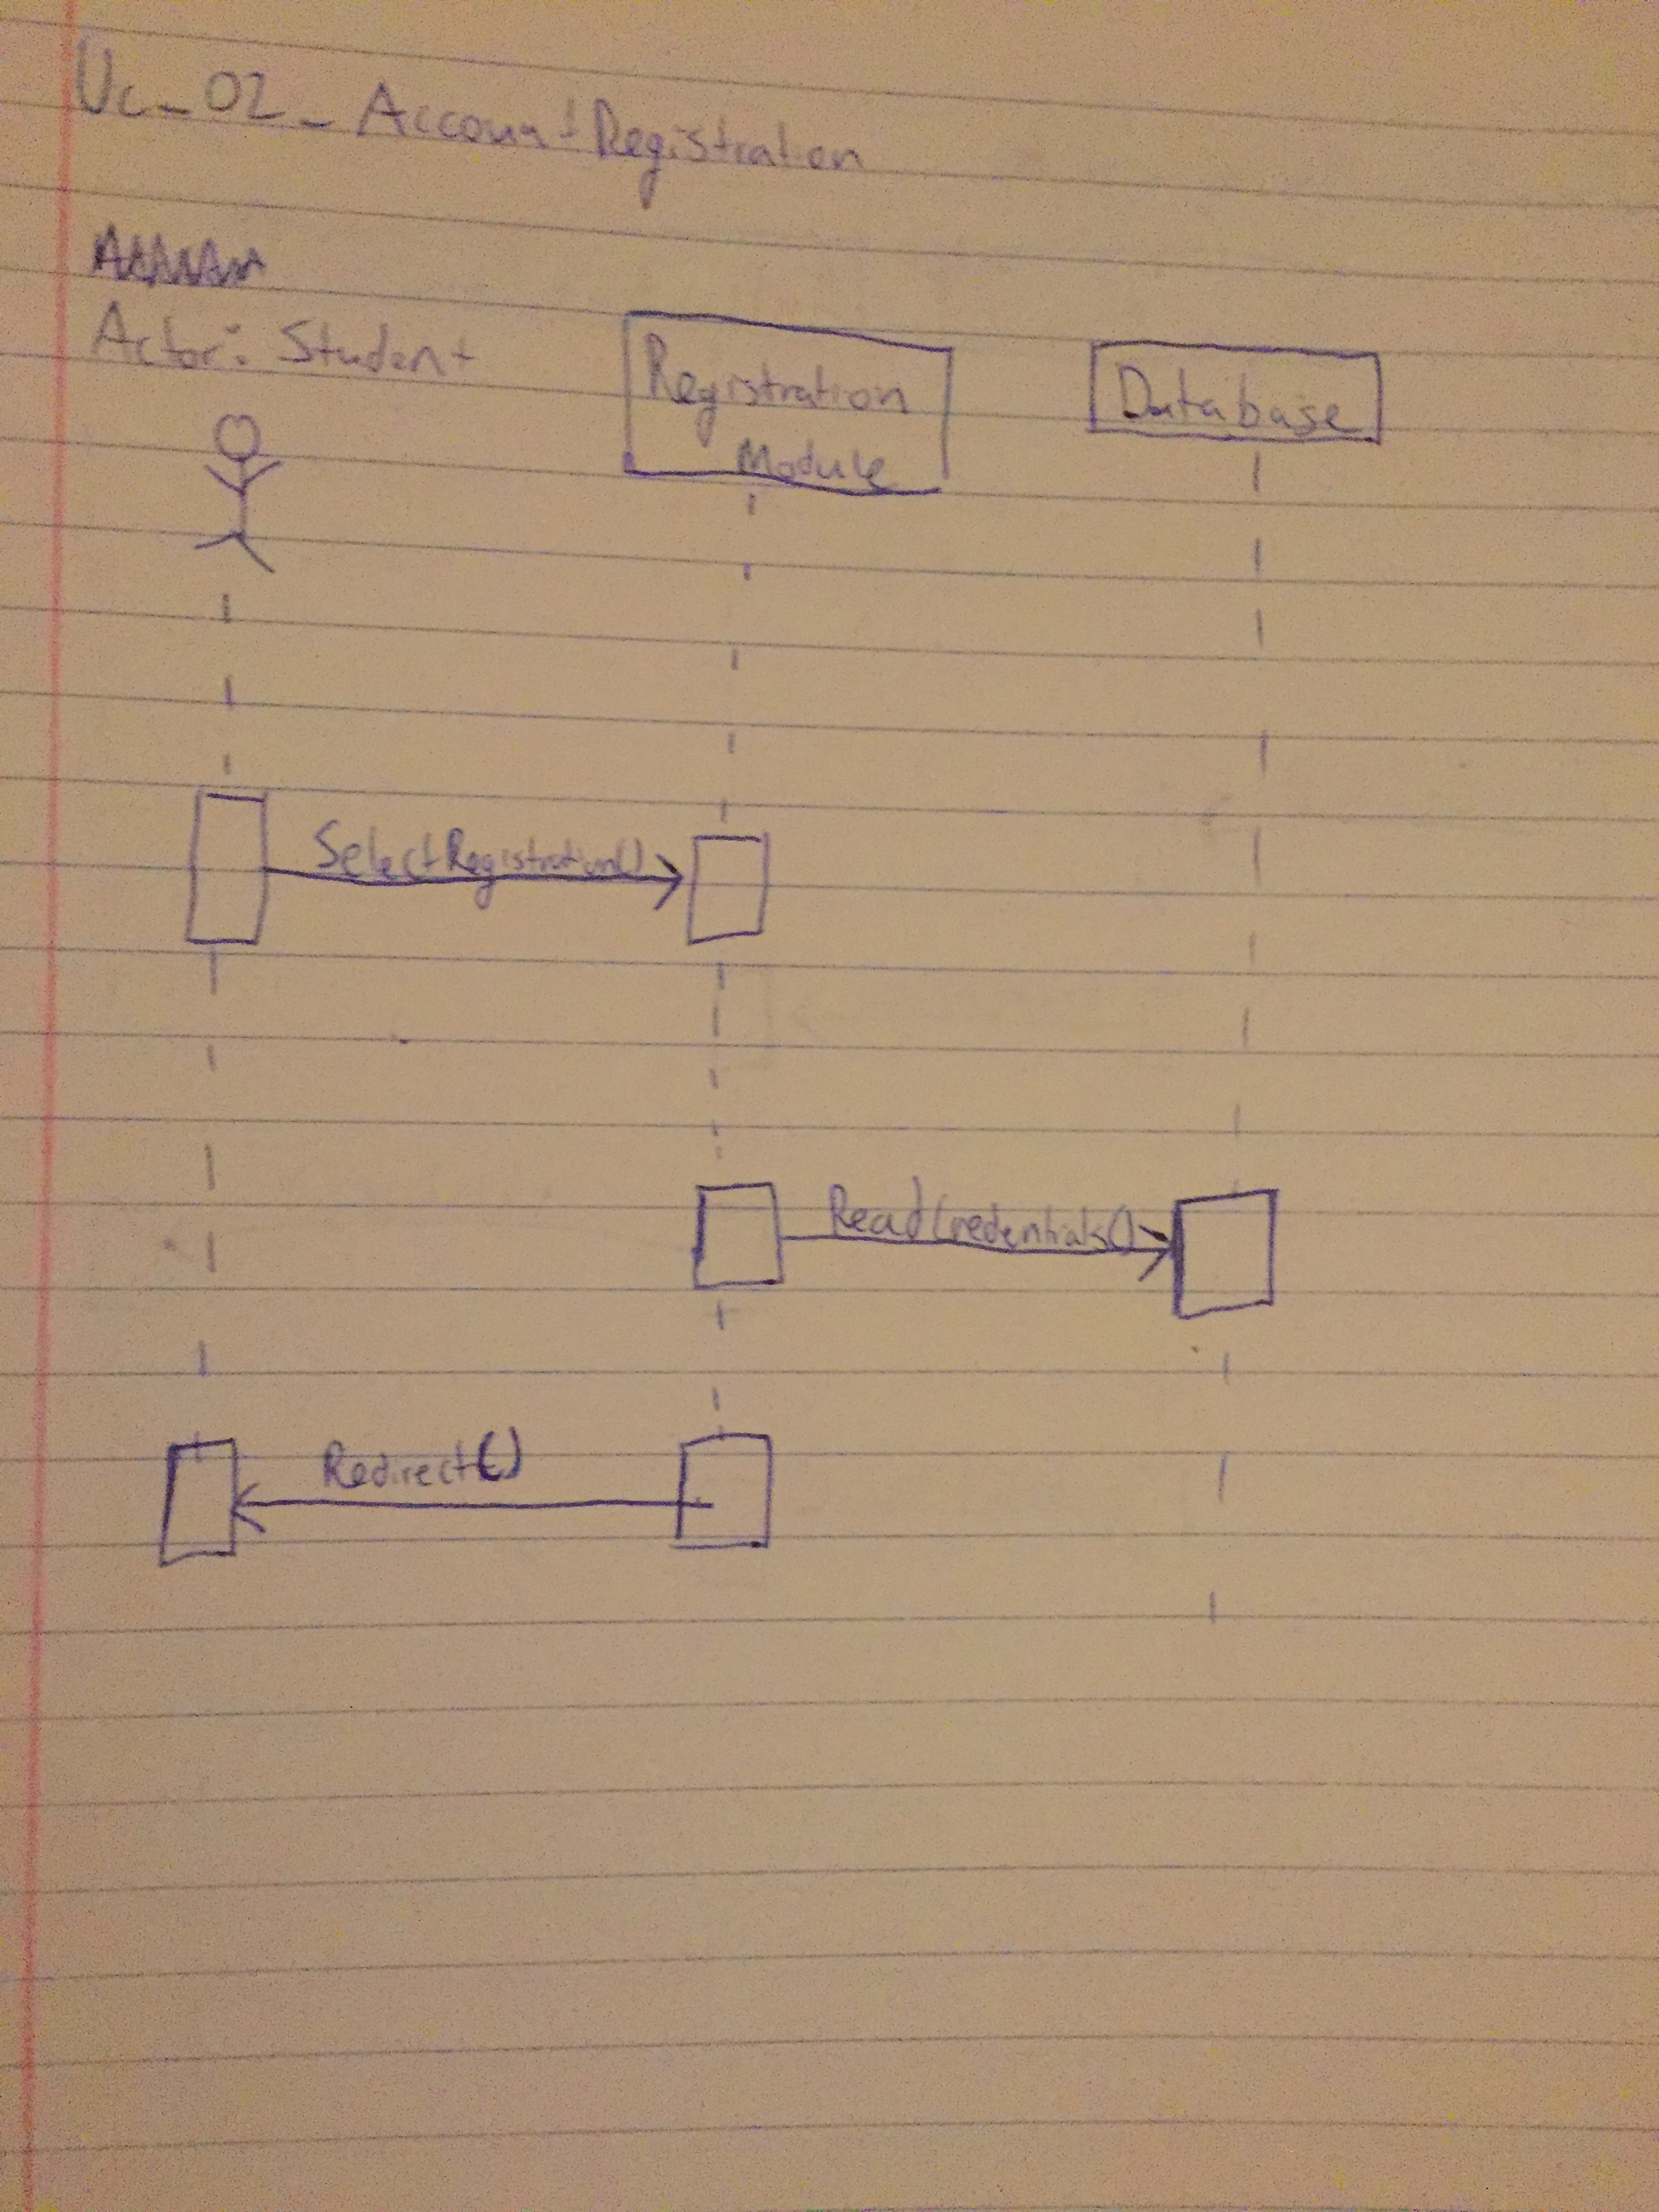 Uc_02_AccountRegistration
Actor: Student
Registration
Module
Database
SelectRegistration()
ReadCredentials()
Redirect()